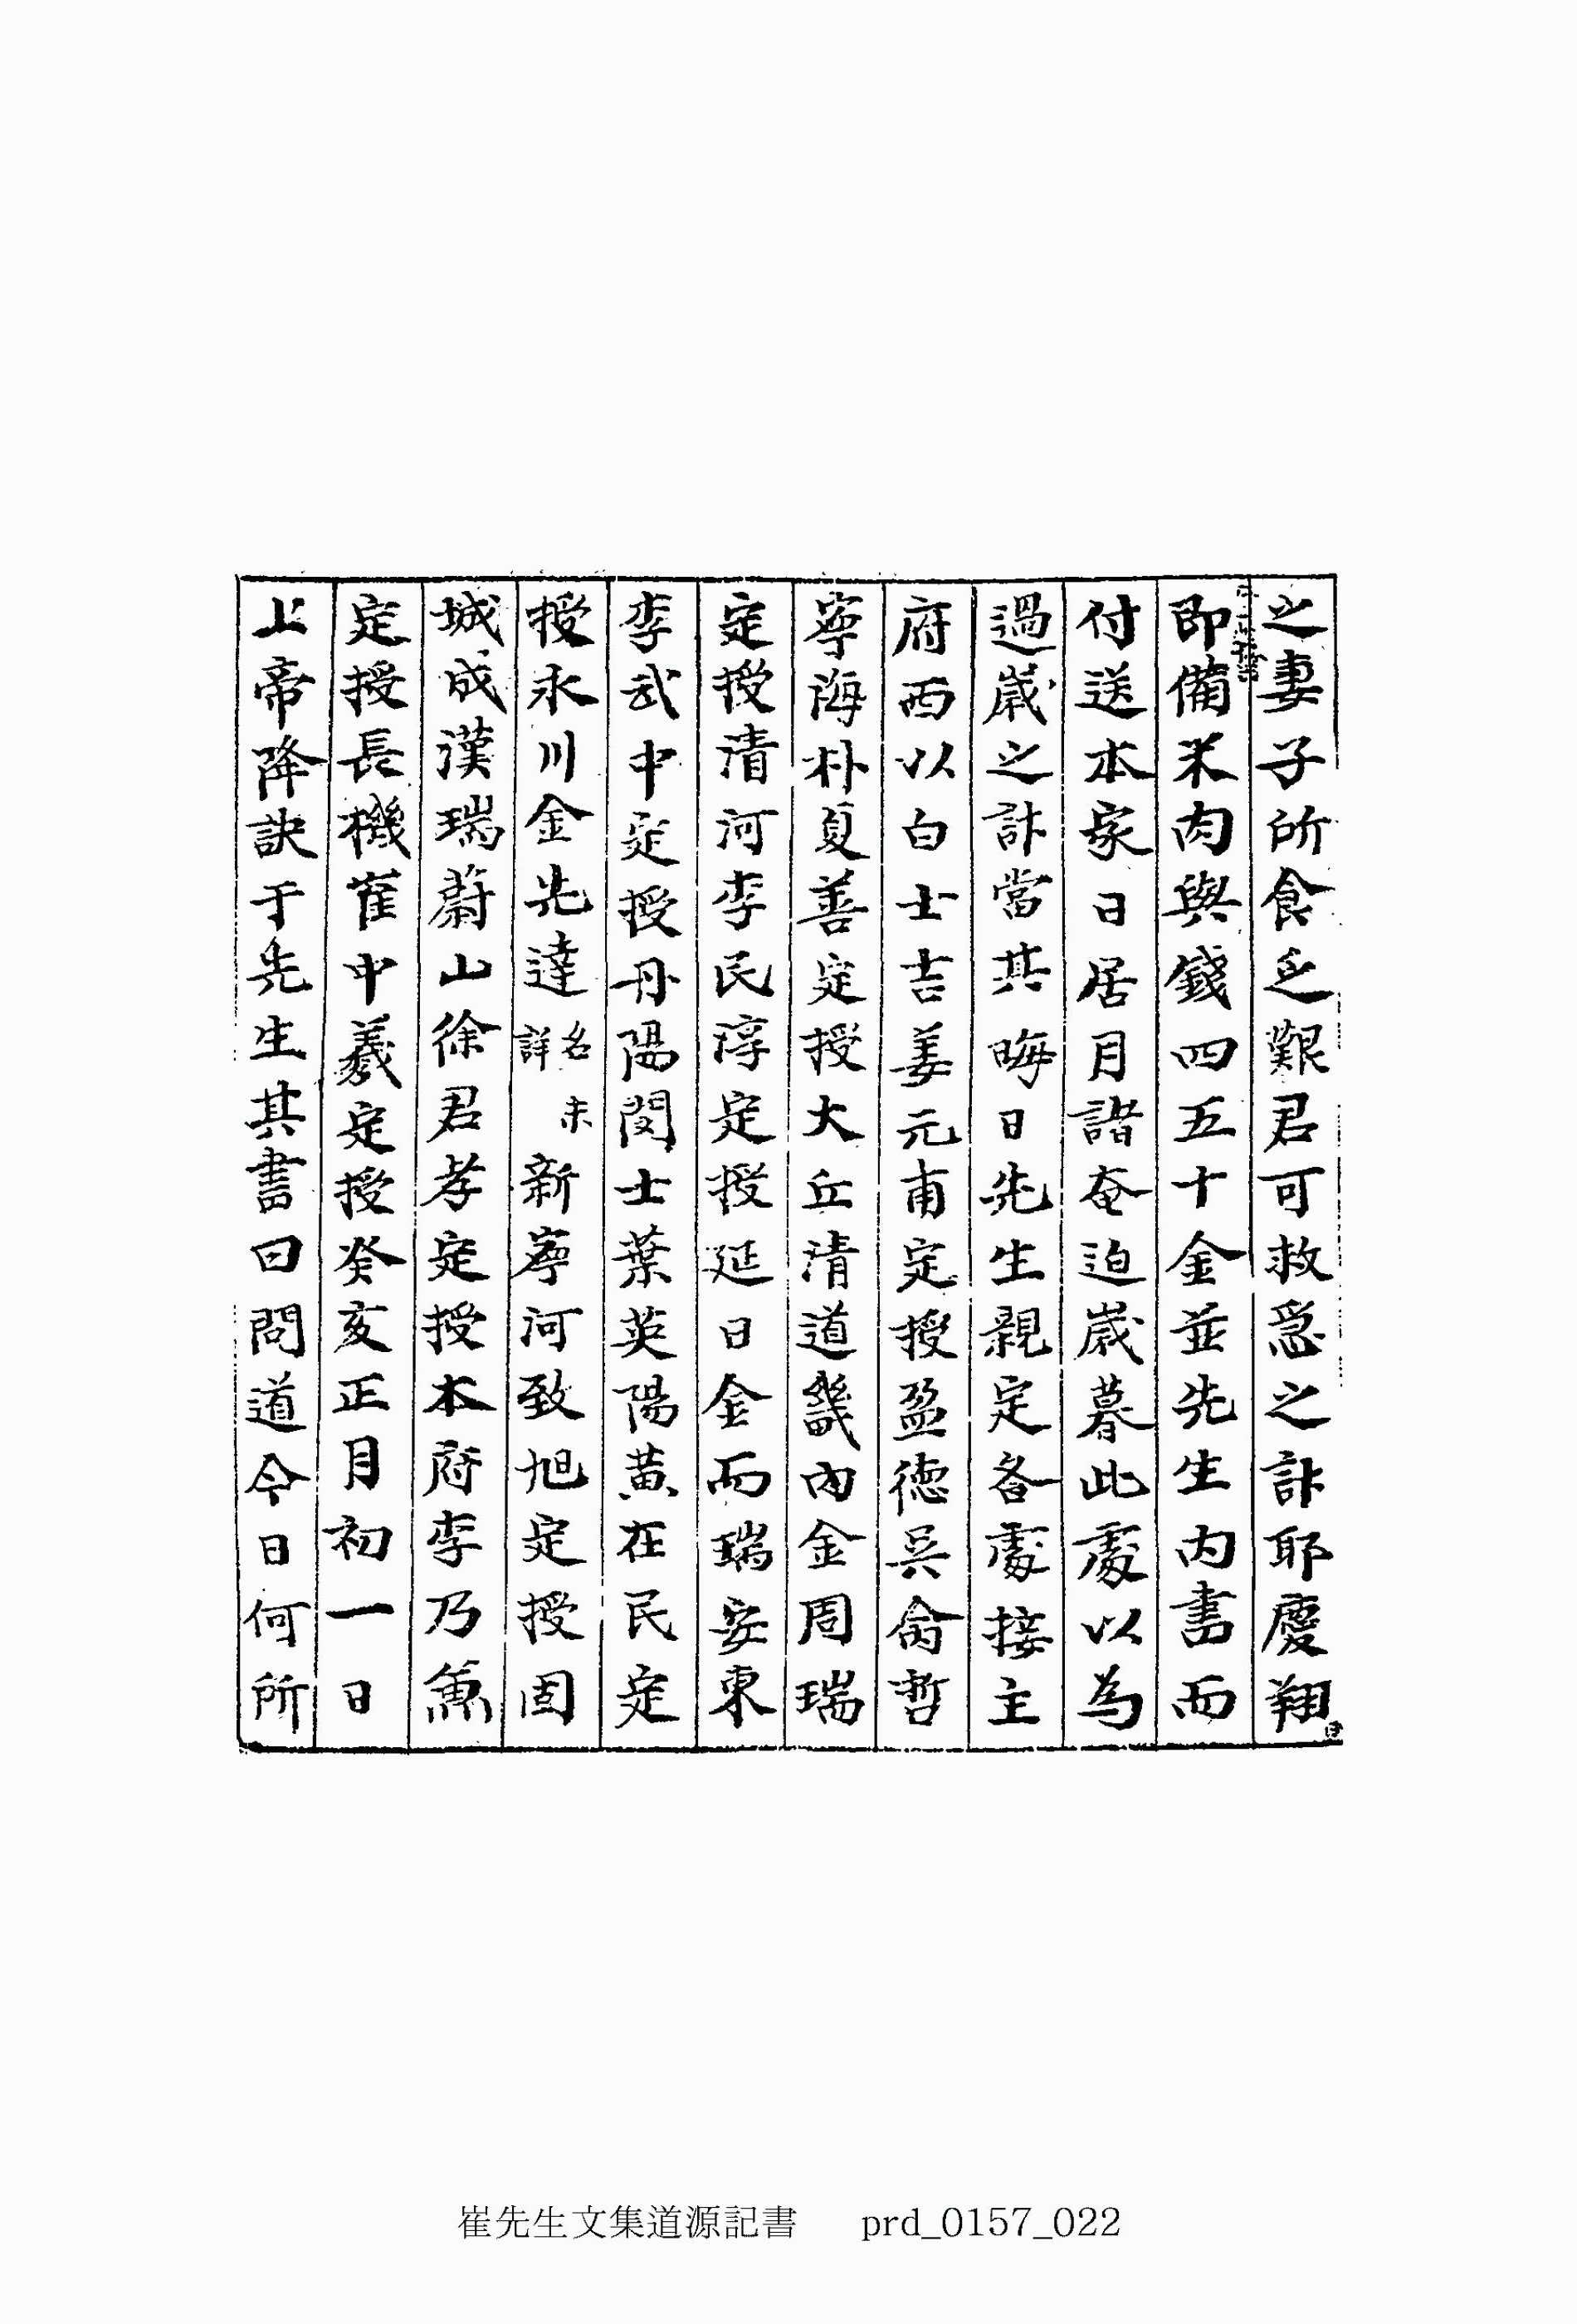 之妻子所食乏艱君可救急之計耶慶翔曰
即備米肉與錢四五十金並先生內書而
付送本家日居月諸奄迫歲暮此處以為
過歲之計當其晦日先生親定各處接主
府西以白士吉姜元甫定授盈德吳命哲
寧海朴夏善定授大丘淸道畿內金周瑞
定授淸河李民淳定授延日金而瑞安東
李武中定授丹陽閔士葉英陽黃在民定
授永川金先達名未詳新寧河致旭定授固
城成漢瑞蔚山徐君孝定授本府李乃兼
定授長機崔中羲定授癸亥正月初一日
上帝降訣于先生其書曰問道今日何所
崔先生文集道源記書 prd_0157_022